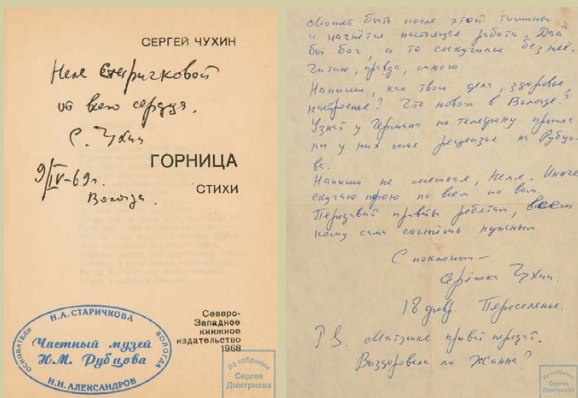 СЕРГЕЙ ЧУХИН
Неле Старичковой
от всего сердца.
С. Чухин
9/IV-69г.
Вологда.
ГОРНИЦА
СТИХИ
Северо-
Западное
книжное
издательство
1968
Н.А. СТАРИЧКОВА
ОСНОВАТЕЛИ
ВОЛОГДА
Частный музей
Н.М. Рубцова
Н.Н. АЛЕКСАНДРОВ
Из собрания
Сергея
Дмитриева
Может быть после этой тишины
и начнётся настоящая работа. Дай
бы бог, а то соскучился без неё.
Читаю, правда, много.
Напиши, как твои дела, здоровье,
настроенье? Что нового в Вологде?
Узнай у Германа по телефону прошла
ли у них моя рецензия на Рубцо-
ва.
Напиши не мешкая, Неля. Иначе
скучаю по всем по вам.
Передавай приветы ребятам, всем
кому сама сочтёшь нужным
С поклоном —
Серёжка Чухин.
18 февр. Переселенье.
P.S. Матушке привет передай.
Выздоровела ли Жанна?
Из собрания
Сергея
Дмитриева